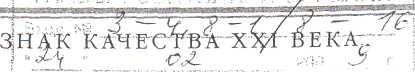 3 - 4, 8 - 1 / 8 - 16
ЗНАК КАЧЕСТВА XXI ВЕКА
24 02 9